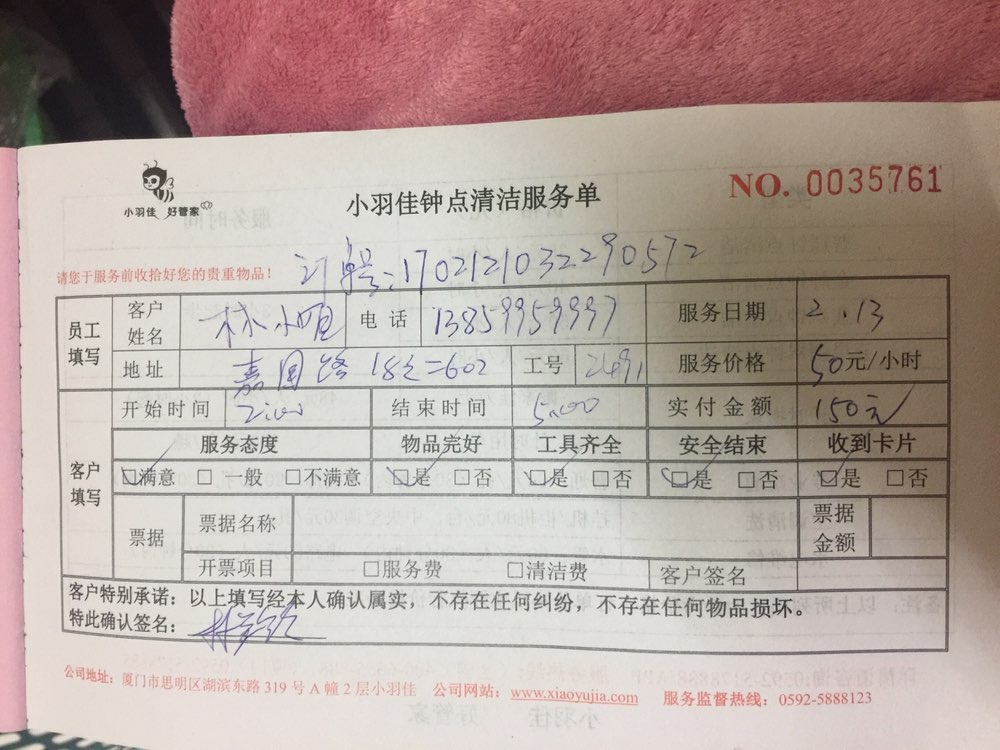 小羽佳 好管家
小羽佳钟点清洁服务单
NO. 0035761
请您于服务前收拾好您的贵重物品！
订单号:1702121032290572
员工填写 客户姓名 林小 电话 13859959997 服务日期 2.13
地址 嘉园路 18之二602 工号 21491 服务价格 50元/小时
客户填写 开始时间 2:00 结束时间 5:00 实付金额 150元
服务态度 物品完好 工具齐全 安全结束 收到卡片
☑满意 □ 一般 □不满意 ☑是 □否 ☑是 □否 ☑是 □否 ☑是 □否
票据 票据名称 票据金额
开票项目 □服务费 □清洁费 客户签名
客户特别承诺：以上填写经本人确认属实，不存在任何纠纷，不存在任何物品损坏。
特此确认签名：林
公司地址：厦门市思明区湖滨东路 319 号 A 幢 2 层小羽佳 公司网站：www.xiaoyujia.com 服务监督热线：0592-5888123